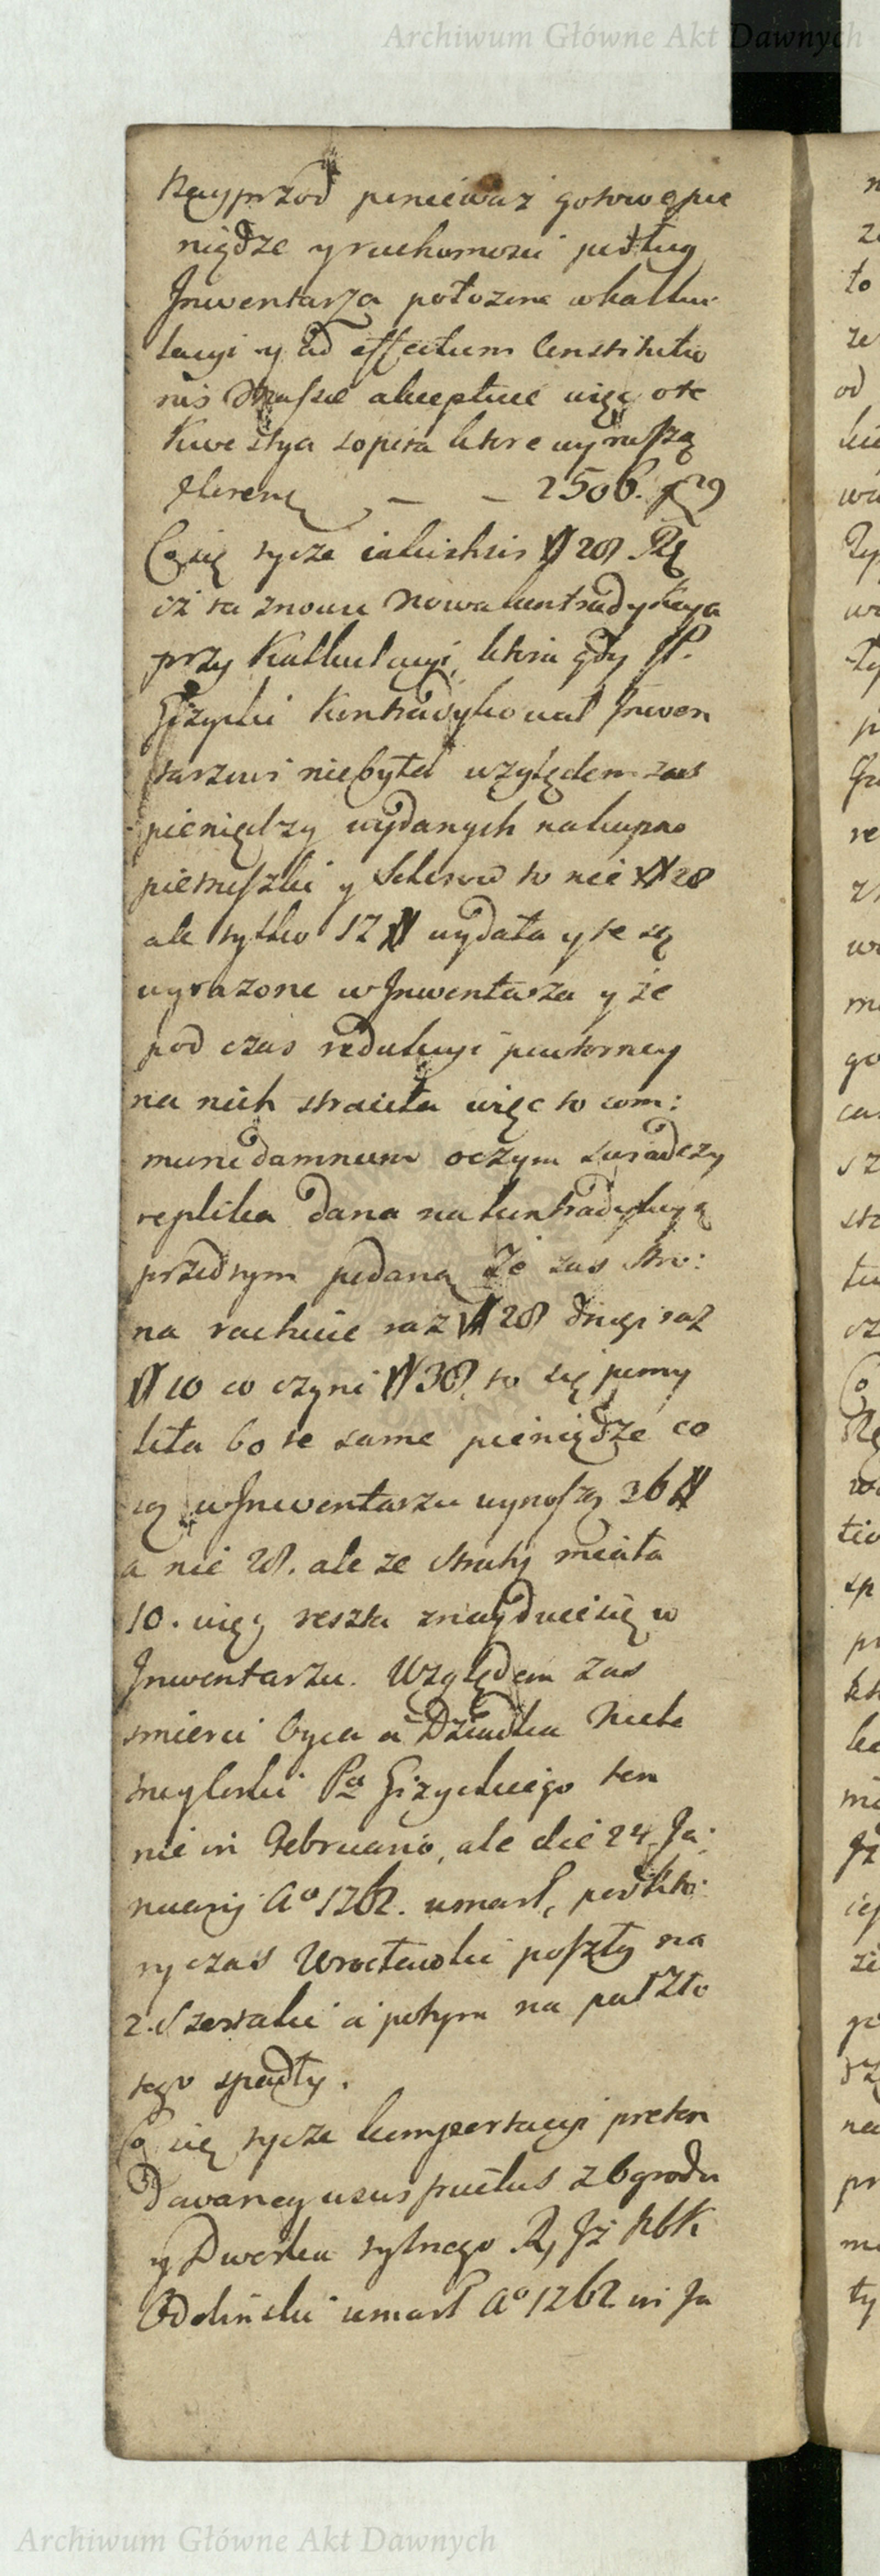 Archiwum Główne Akt Dawnych
Nayprzod poniewaz gotowe pie
niądze y ruchomosci podług
Inwentarza połozone w kalku
lacyi y ad effectum Constitutio
nis akceptuie więc ote
kwestya sopita ktore wynoszą
florenę — — 2506. 29
Co się tycze iakichsis # 28 Rę
cż ta znowu Nowa kontradykcya
przy Kalkulacyi, ktora gdy JP.
Gizycki Kontradykował Inwen
tarzowi niebyła względem zas
pieniędzy wydanych na kupno
pietruszki y Selerow to nie # 28
ale tylko 17 # wydała y te są
wyrazone w Inwentarza y że
pod czas redukcyi powtorney
na nich straciła więc to com:
mune damnum oczym swiadczy
replika dana na kontradykcyą
przedtym podaną Ze zas stro:
na rachuie raz # 28 drugi raz
# 10 co czyni # 38, to się pomy
liła bo te same pieniądze co
są w Inwentarzu wynoszą 36 #
a nie 28. ale ze straty miała
10. więc reszta znayduie się w
Inwentarzu. Względem zas
smierci Oyca a Dziadka Niele
Pa Gizyckiego ten
nie in Februario, ale die 24 Ja:
nuarij Ao 1762. umarł, pod kto:
ry czas Wrocławki poszły na
2. Szostaki a potym na puł Zło
tego spadły.
Co się tycze komportacyi preten
dowaney usus fructus z Ogrodu
y Dworku tylnego R, Jż
Odoliński umarł Ao 1762 in Ja
Archiwum Główne Akt Dawnych